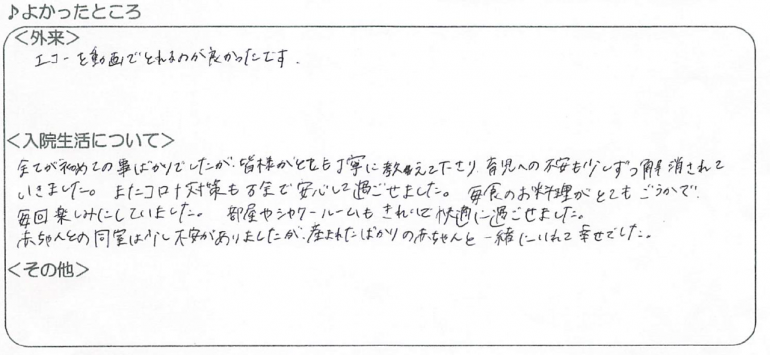 ♪よかったところ
<外来>
エコーを動画でとれるのが良かったです.
<入院生活について>
全てが初めての事ばかりでしたが、皆様がとても丁寧に教えて下さり、育児への不安も少しずつ解消されて
いきました。またコロナ対策も万全で安心して過ごせました。毎食のお料理がとてもごうかで、
毎回楽しみにしていました。部屋やシャワールームもきれいで快適に過ごせました。
赤ちゃんとの同室は少し不安がありましたが、産まれたばかりの赤ちゃんと一緒にいれて幸せでした。
<その他>